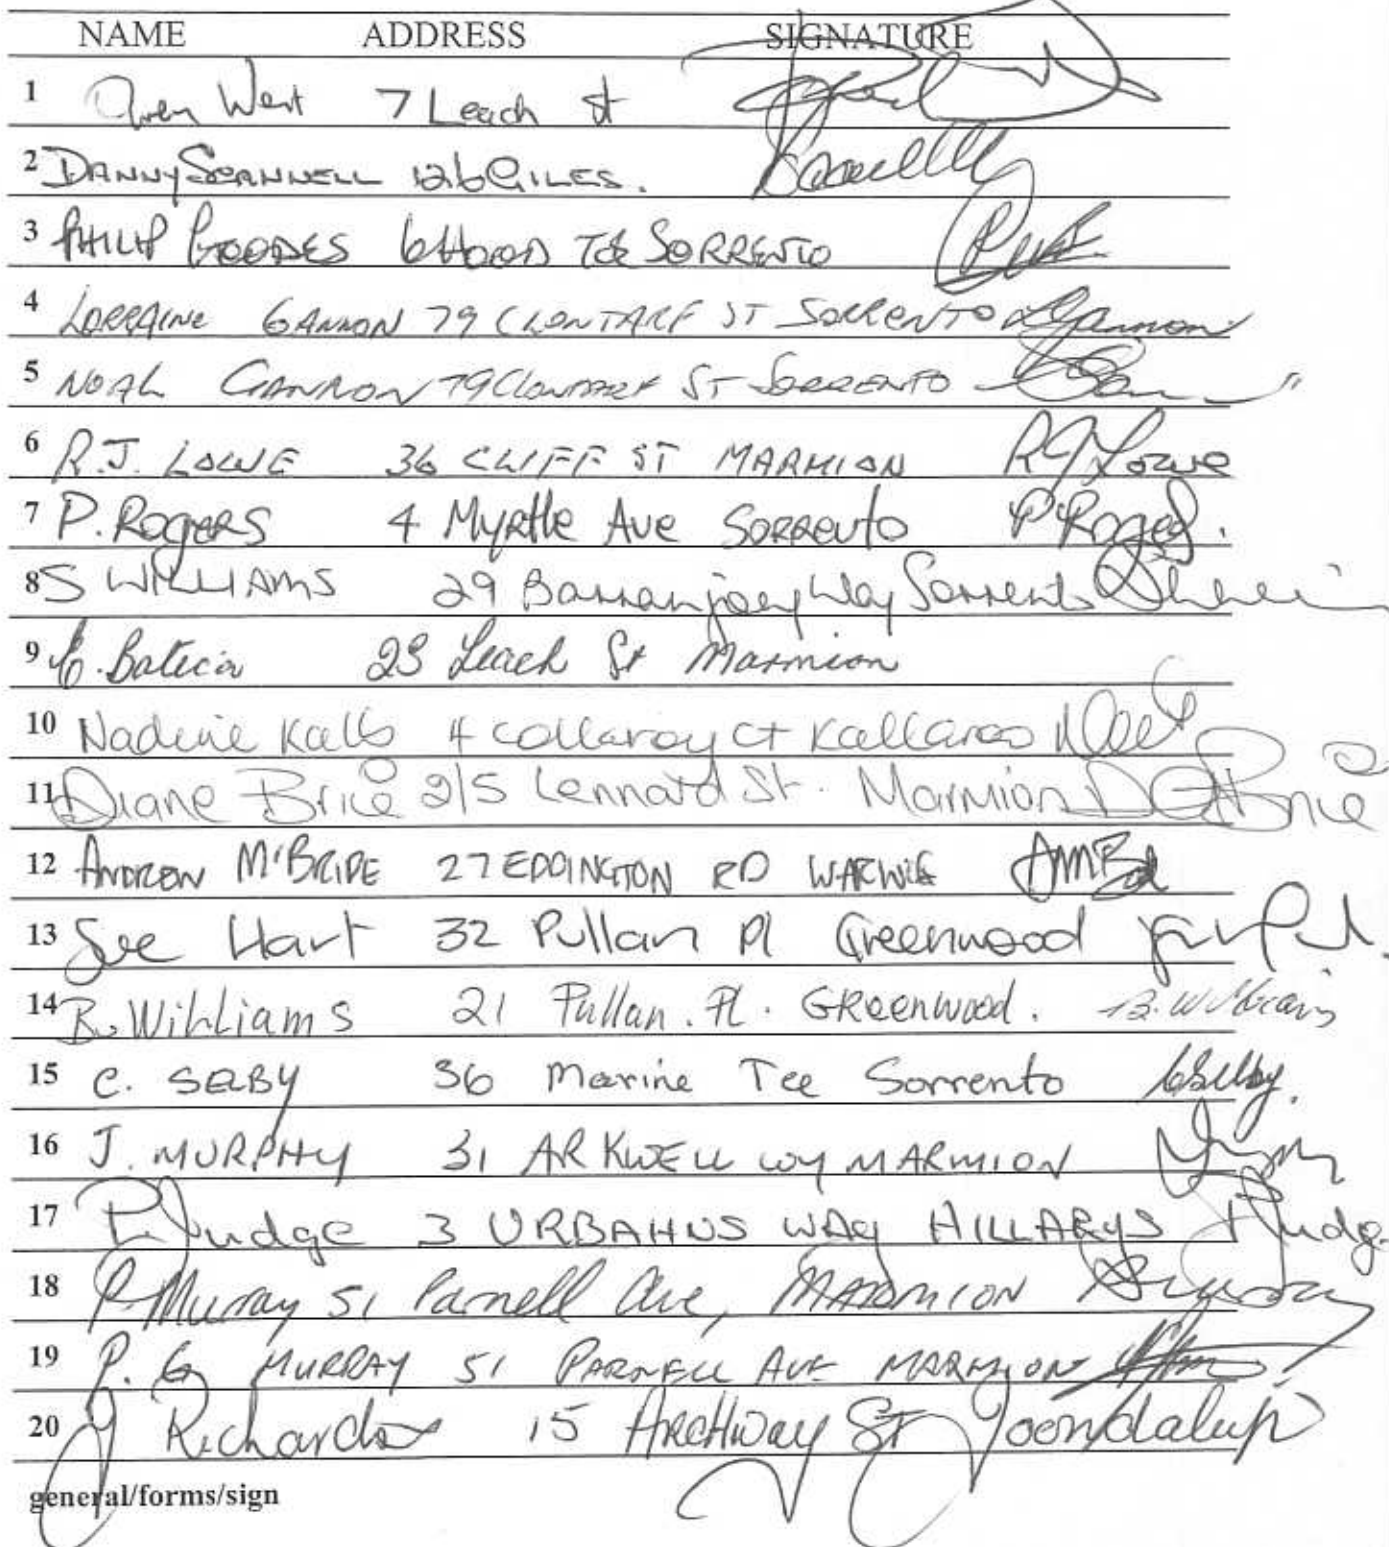 NAME ADDRESS SIGNATURE
1 Owen West 7 Leach St
2 DANNY SCANNELL 12b GILES.
3 PHILIP 6 HOOD TCE SORRENTO
4 LORRAINE GANNON 79 CLONTARF ST SORRENTO LGannon
5 NOAL GANNON 79 CLONTARF ST SORRENTO
6 R.J. LOWE 36 CLIFF ST MARMION RJLowe
7 P. ROGERS 4 Myrtle Ave SORRENTO P Rogers.
8 S WILLIAMS 29 Barranjoey Way Sorrento
9 23 Leach St Marmion
10 Nadine Kalb 4 Collaroy Ct Kallaroo
11 Diane Brice 2/5 Lennard St. Marmion D Brice
12 ANDREW McBRIDE 27 EDDINGTON RD WARWICK
13 Sue Hart 32 Pullan Pl Greenwood
14 B. Williams 21 Pullan. Pl. GReenwood. B. Williams
15 C. SELBY 36 Marine Tce Sorrento CSelby.
16 J. MURPHY 31 ARKWELL WY MARMION
17 P. Judge 3 URBAHNS WAY HILLARYS PJudge
18 P. Murray 51 Parnell Ave, MARMION
19 P. G MURRAY 51 PARNELL AVE MARMION
20 J Richards 15 ARCHWay ST Joondalup
general/forms/sign